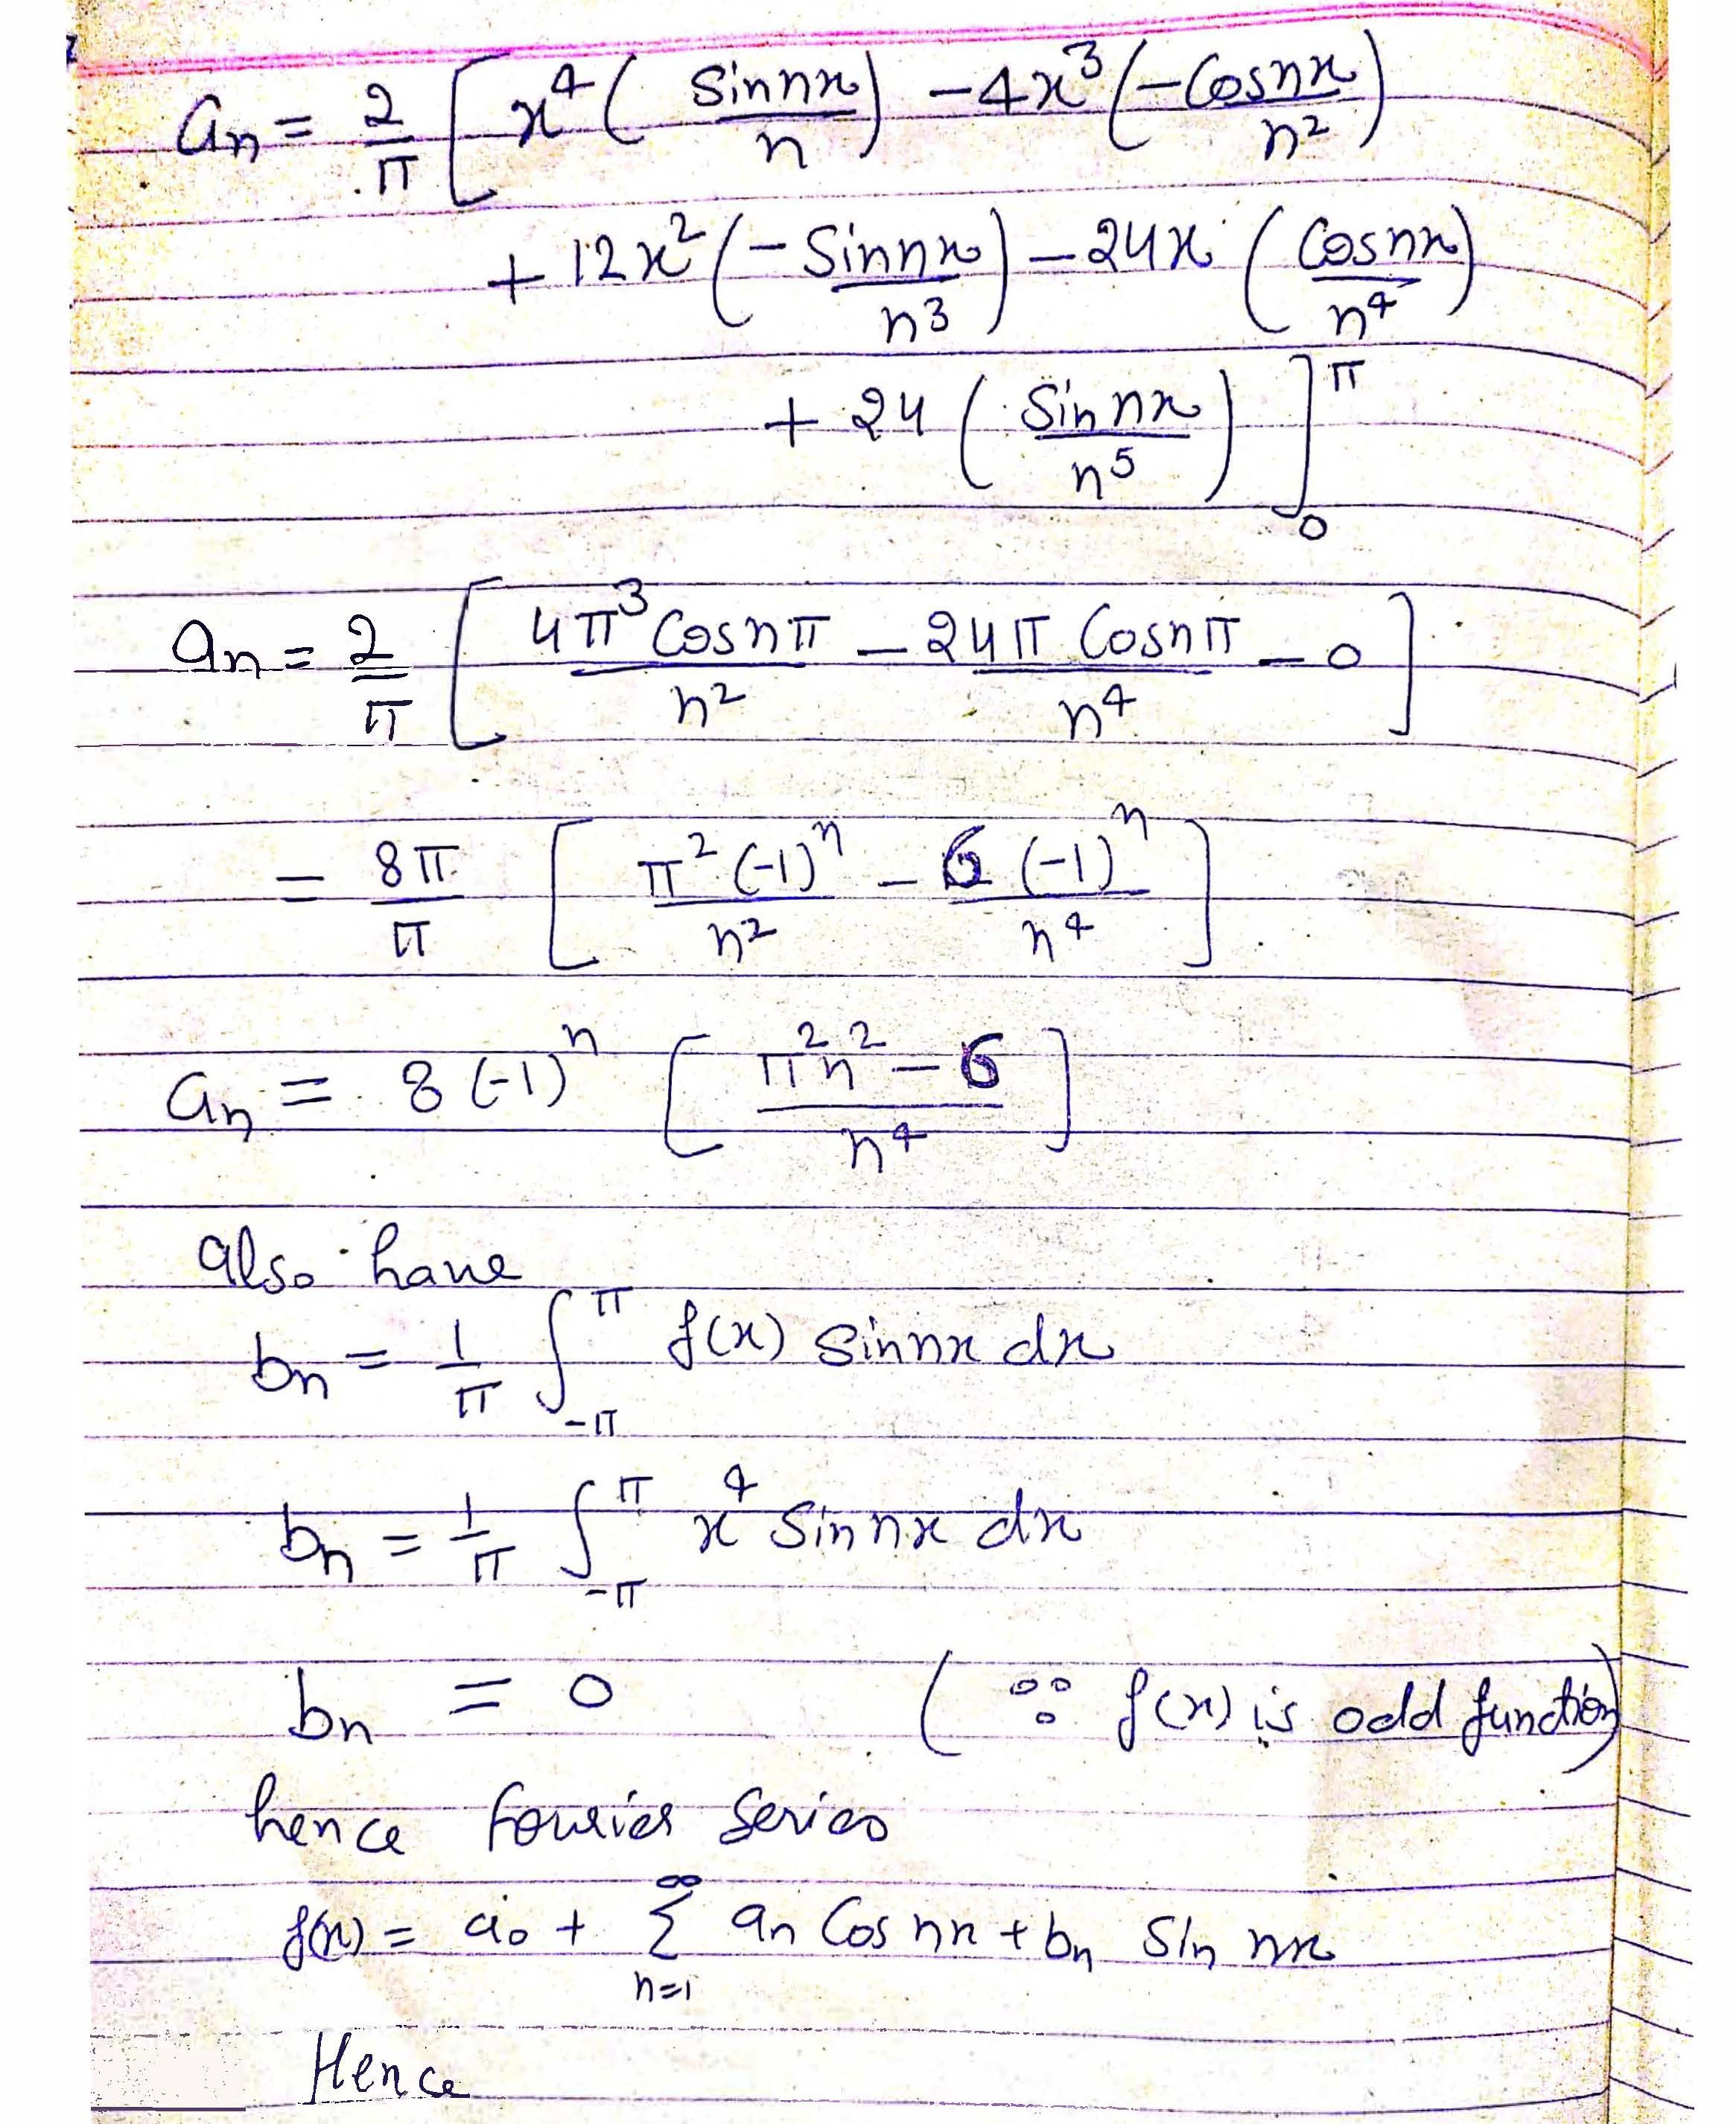 an = 2/π [ x⁴ ( Sinnx/n ) - 4x³ ( -Cosnx/n² )
+ 12x² ( - Sinnx/n³ ) - 24x ( Cosnx/n⁴ )
+ 24 ( Sinnx/n⁵ ) ]₀^π
an = 2/π [ 4π³ Cosnπ/n² - 24π Cosnπ/n⁴ - 0 ]
= 8π/π [ π² (-1)ⁿ/n² - 6 (-1)ⁿ/n⁴ ]
an = 8 (-1)ⁿ [ π²n² - 6/n⁴ ]
also have
bn = 1/π ∫_{-π}^{π} f(x) Sinnx dx
bn = 1/π ∫_{-π}^{π} x⁴ Sinnx dx
bn = 0 ( ∵ f(x) is odd function)
hence fourier Series
f(x) = a₀ + ∑_{n=1}^{∞} an Cos nx + bn Sin nx
Hence